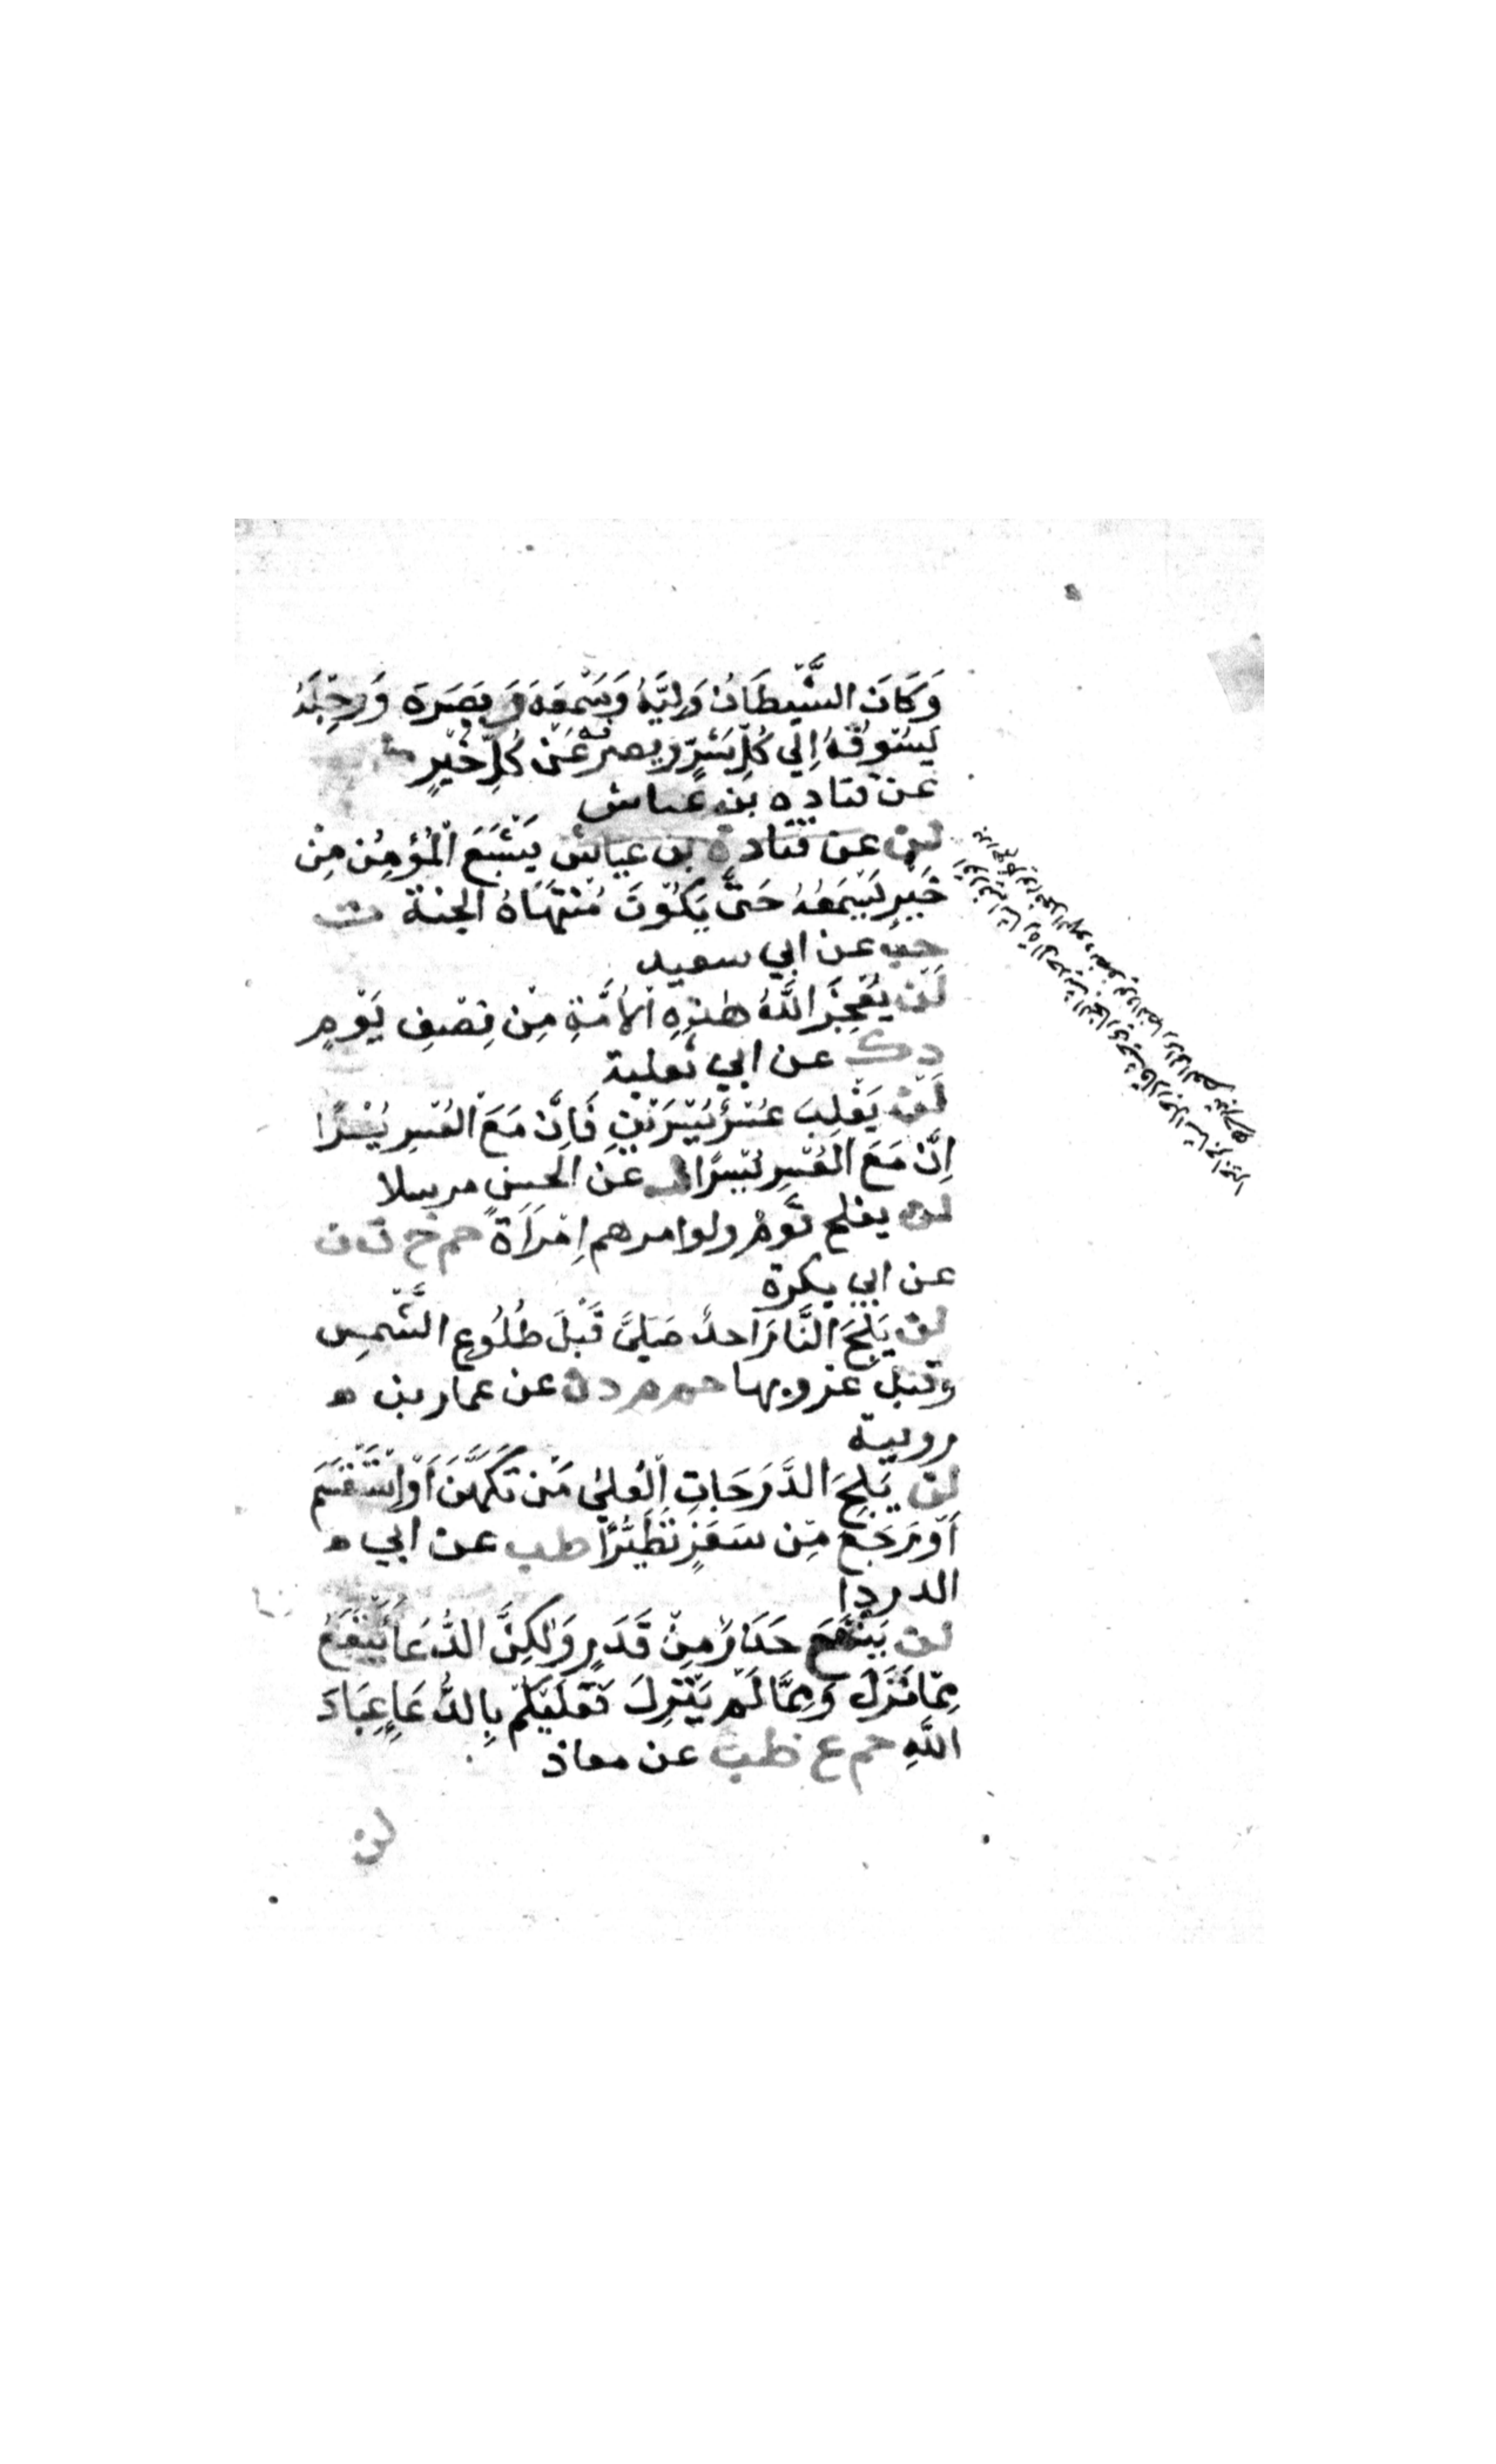 وَكَانَ الشَّيْطَانُ وَلِيَّهُ وَسَمْعَهُ وَبَصَرَهُ وَرِجْلَهُ
يَسُوقُهُ إِلَي كُلِّ شَرٍّ وَيصرفه عَنْ كُلِّ خَيْرٍ
عن قتاده بن عياش
لن عن قتادة بن عياش يَشْبَعَ الْمُؤمِنُ مِنْ
خَيْرٍ يَسْمَعُهُ حَتَّى يَكُونَ مُنْتَهَاهُ الجنة ت
حب عن ابي سعيد
لَنْ يُعْجِزَ اللَّهُ هٰذِهِ الْاُمَّةِ مِنْ نِصْفِ يَوْمٍ
د ك عن ابي ثعلبة
لَنْ يَغْلِبَ عُسْرٌ يُسْرَيْنِ فَاِنَّ مَعَ الْعُسْرِ يُسْرًا
اِنَّ مَعَ الْعُسْرِ يُسْرًا ك عَن الحسن مرسلا
لن يفلح قَومٌ ولوا مرهم اِمْرَاَةً حم خ ت ن
عن ابي بكرة
لن يَلِجَ النَّارَ اَحدٌ صَلَّى قَبْلَ طُلُوعِ الشَّمْسِ
وقبل غروبها حم م د ن عن عمار بن
رويبة
لن يَلِجَ الدَّرَجَاتِ الْعُلىٰ مَنْ تَكَهَّنَ اَوْ اِسْتَقْسَمَ
اَوْ رَجَعَ مِنْ سَفَرٍ تَطَيُّرًا طب عن ابي
الدردا
لن يَنْفَعَ حَذَرٌ مِنْ قَدَرٍ وَلٰكِنَّ الدُّعَا يَنْفَعُ
مِمَّا نَزَلَ وَمِمَّا لَمْ يَنْزِلْ فَعَلَيْكُمْ بِالدُّعَاءِ عِبَادَ
اللَّهِ حم ع طب عن معاذ
لن